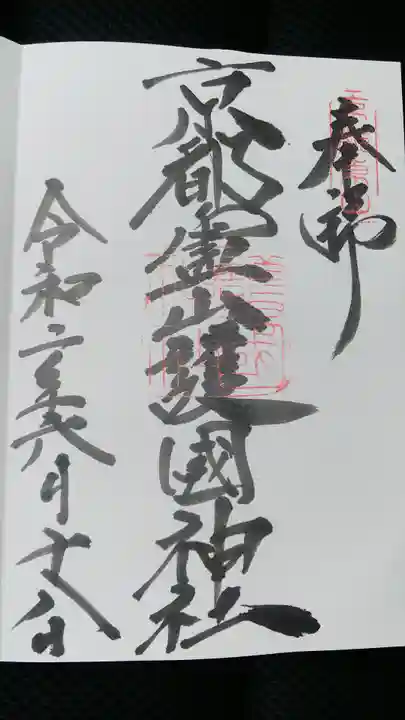 奉拝
京都霊山護國神社
令和二年八月十八日